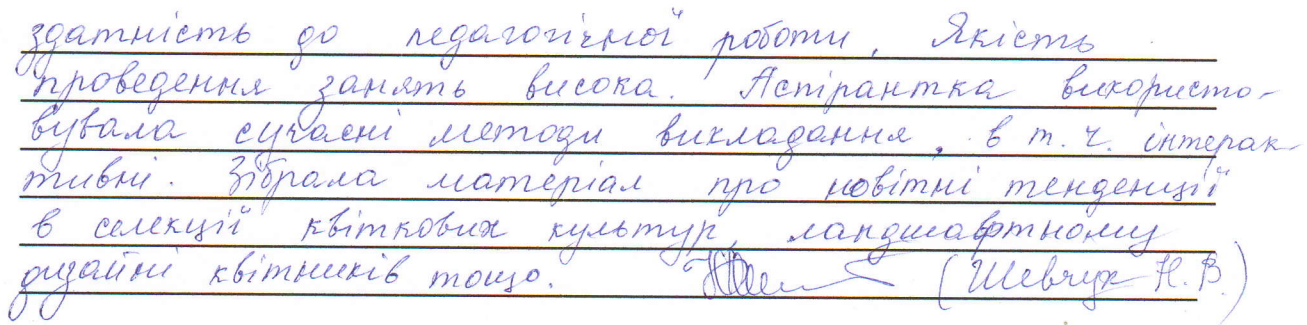 здатність до педагогічної роботи, Якість
проведення занять висока. Аспірантка використо-
вувала сучасні методи викладання, в т. ч. інтерак-
тивні. Зібрала матеріал про новітні тенденції
в селекції квіткових культур, ландшафтному
дизайні квітників тощо. (Шевчук Н. В.)